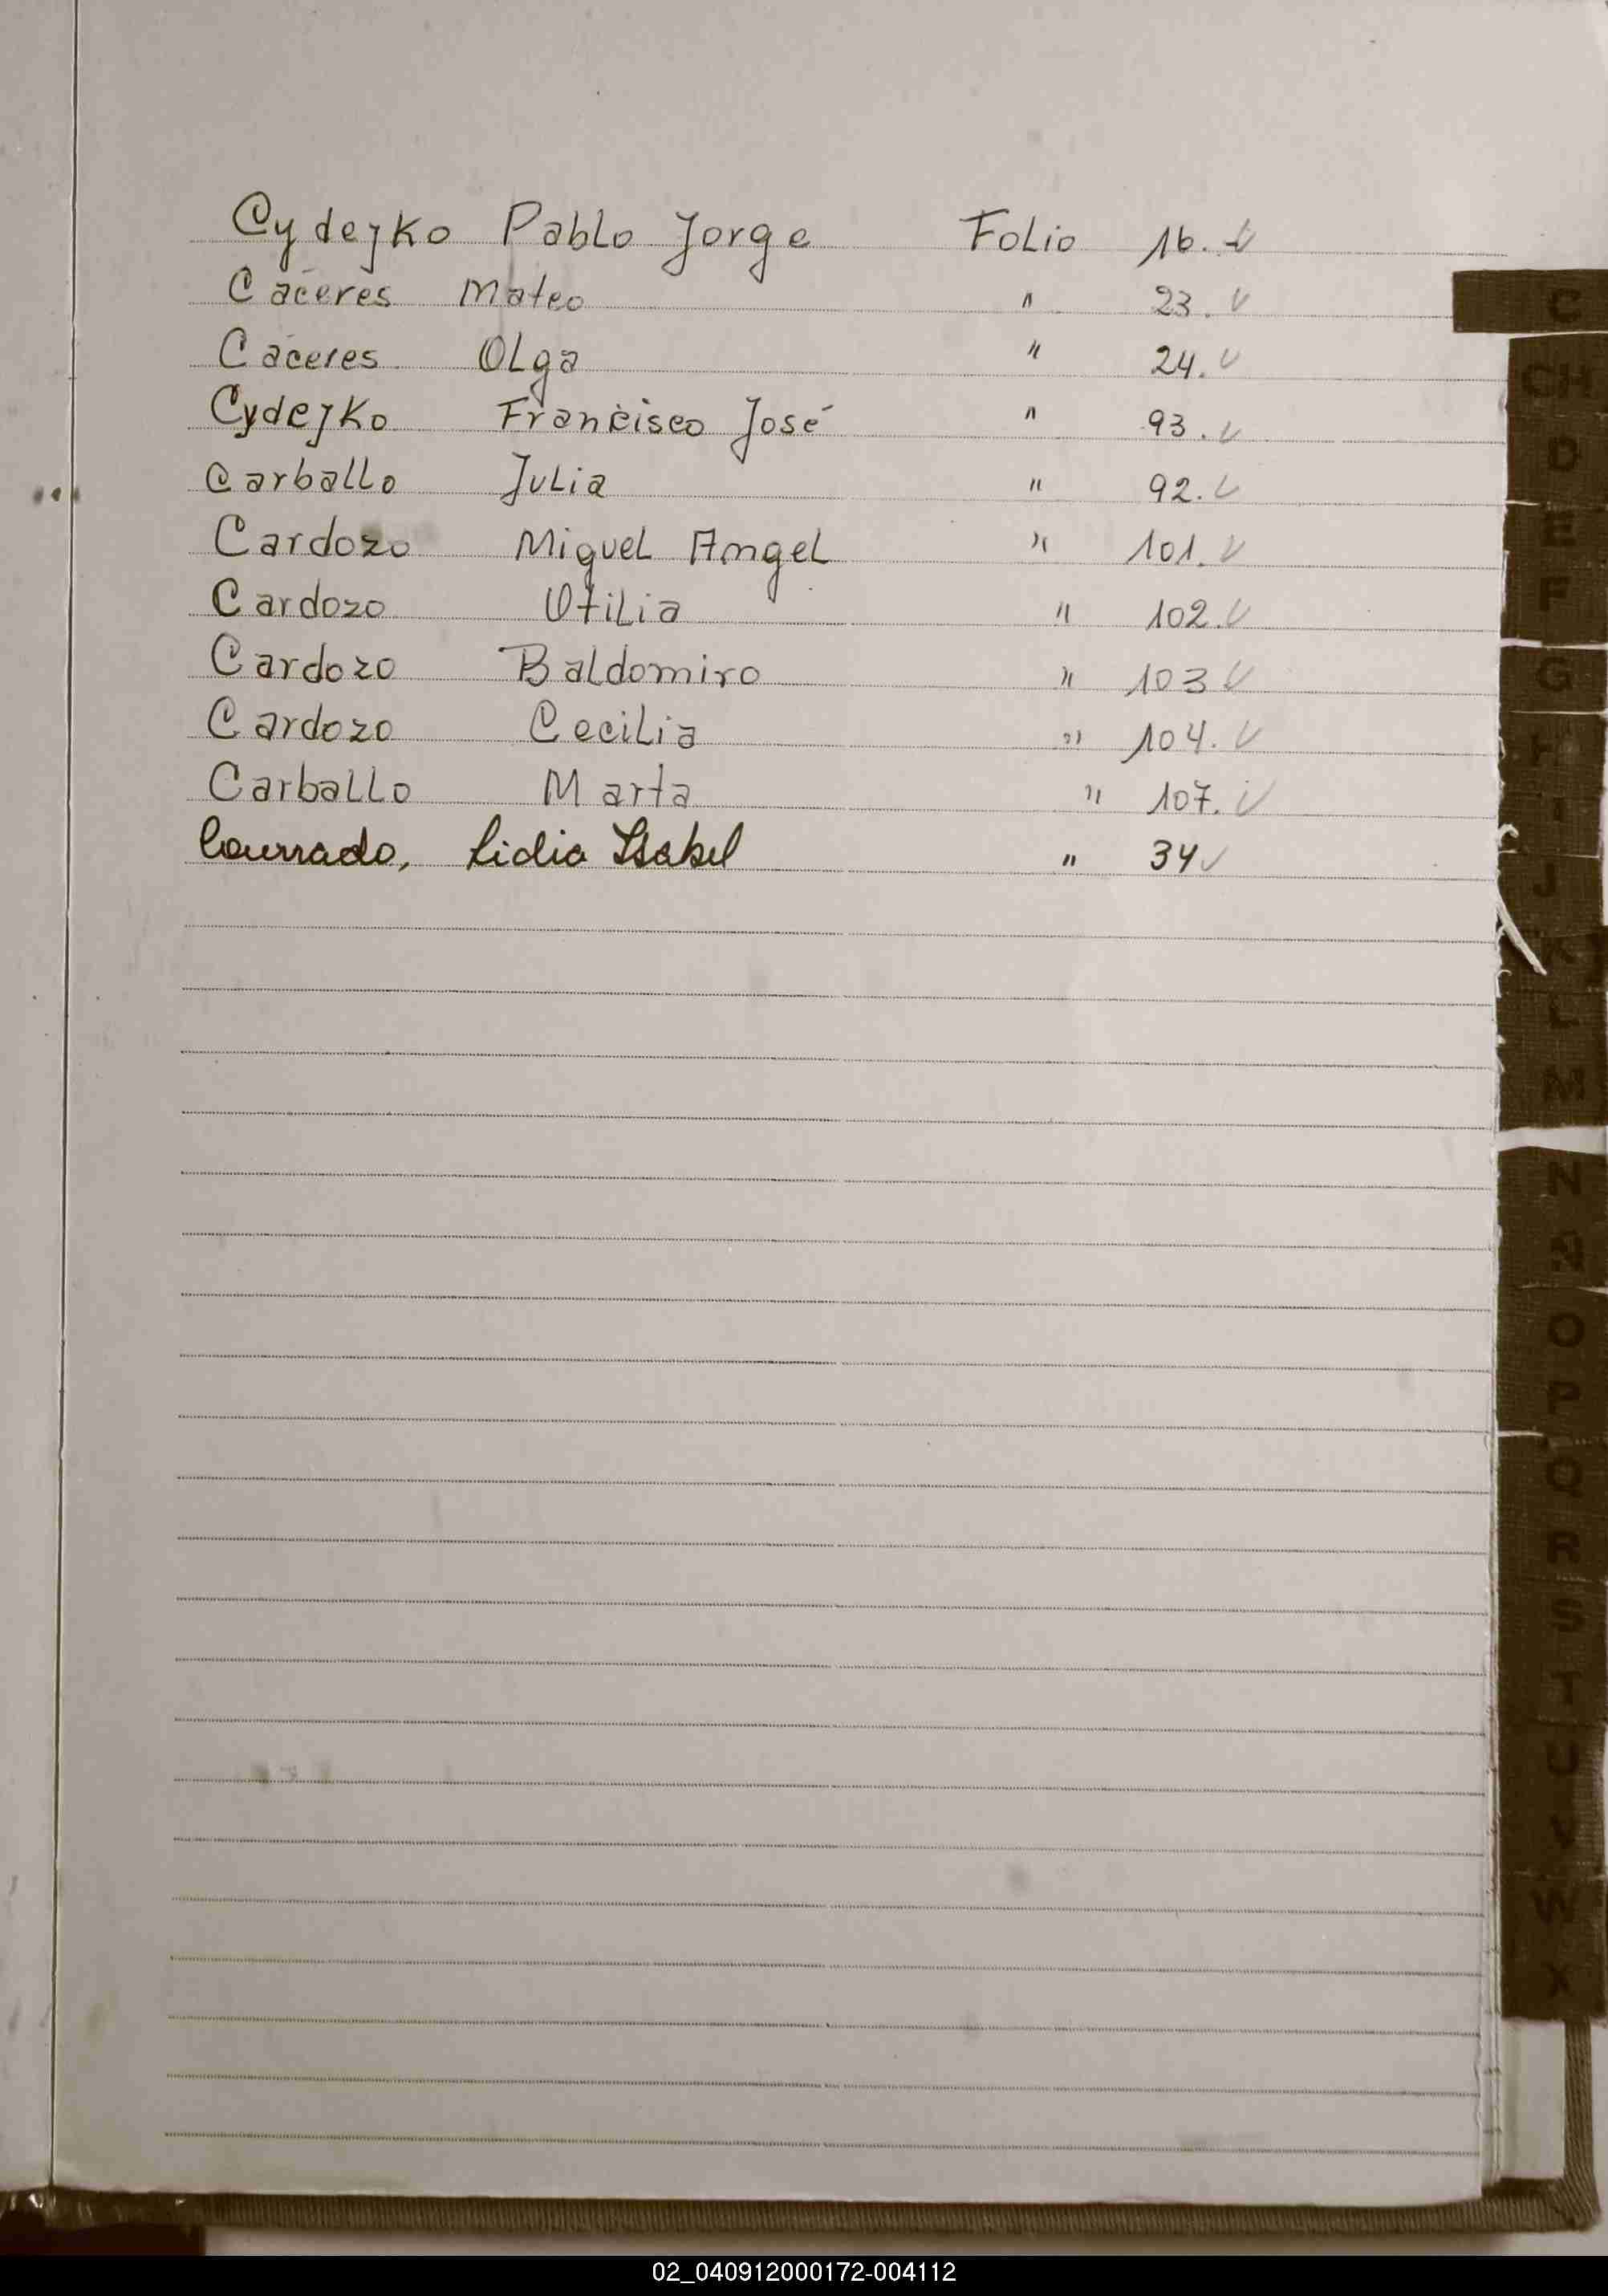 Cydejko Pablo Jorge Folio 16. ✓
Cáceres Mateo " 23. ✓
Cáceres Olga " 24. ✓
Cydejko Francisco José " 93. ✓
Carballo Julia " 92. ✓
Cardozo Miguel Angel " 101. ✓
Cardozo Otilia " 102. ✓
Cardozo Baldomiro " 103 ✓
Cardozo Cecilia " 104. ✓
Carballo Marta " 107. ✓
Lidia Isabel " 34 ✓
C
CH
D
E
F
G
H
I
J
K
L
M
N
Ñ
O
P
Q
R
S
T
U
V
W
X
02_040912000172-004112